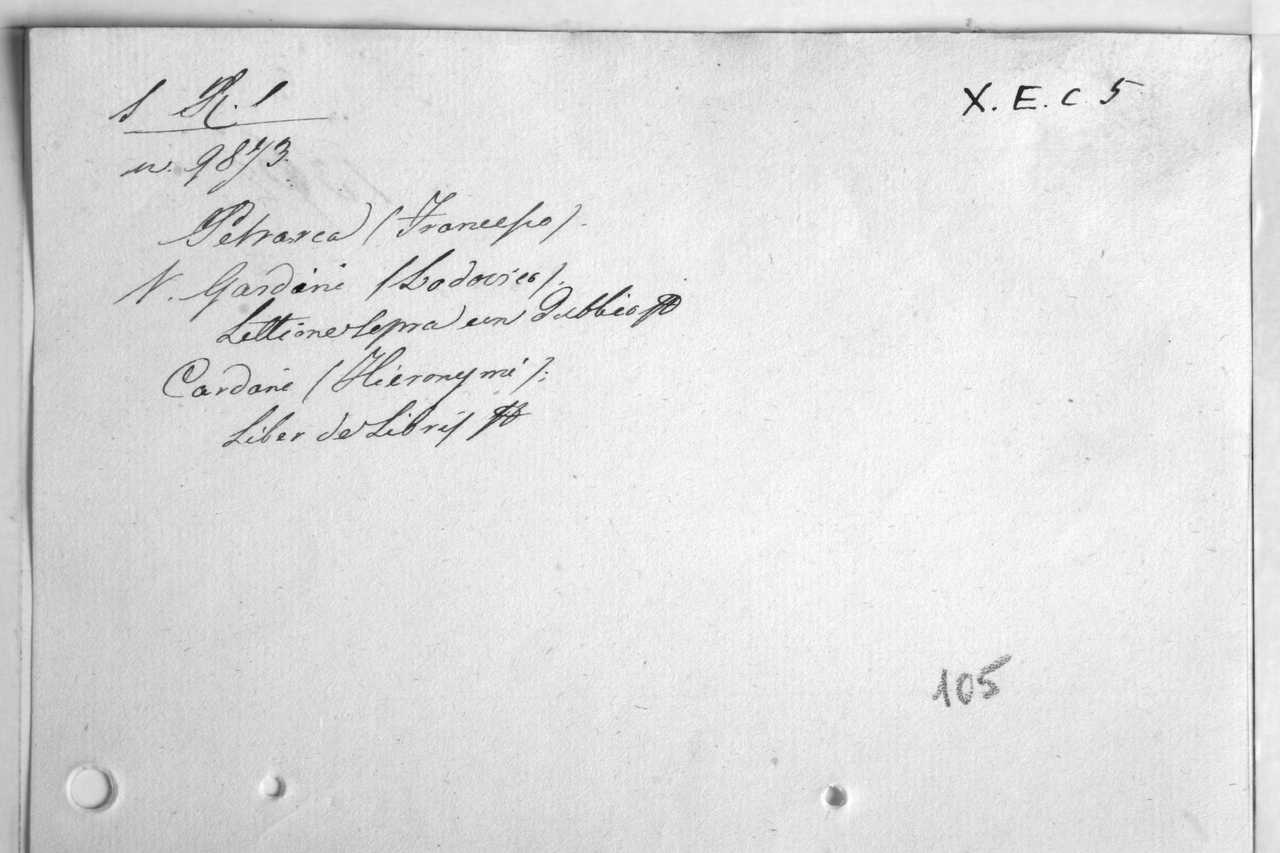 X. E. c. 5
n. 9873.
Petrarca (Francesco).
V. Gardini (Lodovico).
Lettione sopra un Dubbio
Cardani (Hieronymi).
Liber de Libris
105